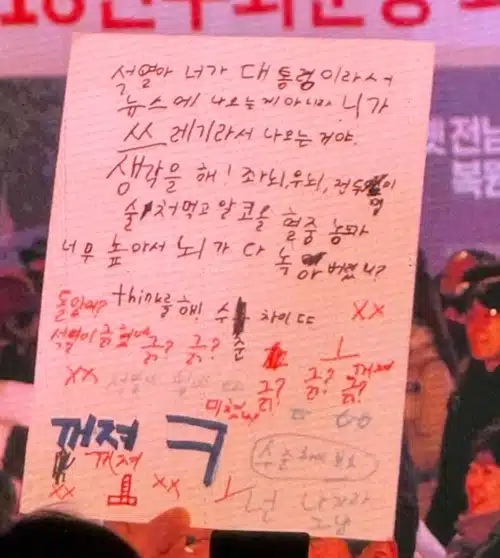 석열아 너가 대통령이라서
뉴스에 나오는게 아니라 니가
쓰레기라서 나오는 거야.
생각을 해! 좌뇌, 우뇌, 전두엽이
술 처먹고 알코올 혈중 농도가
너무 높아서 뇌가 다 녹아 버렸니?
think를 해! 수준 차이 ㄸㄸ
XX
석열이
긁? 긁?
ㅗ
꺼져
XX
긁? 긁? 긁?
미쳤냐
꺼져 ㅋ
꺼져
XX XX ㅗ
넌 나가라
그냥
전남